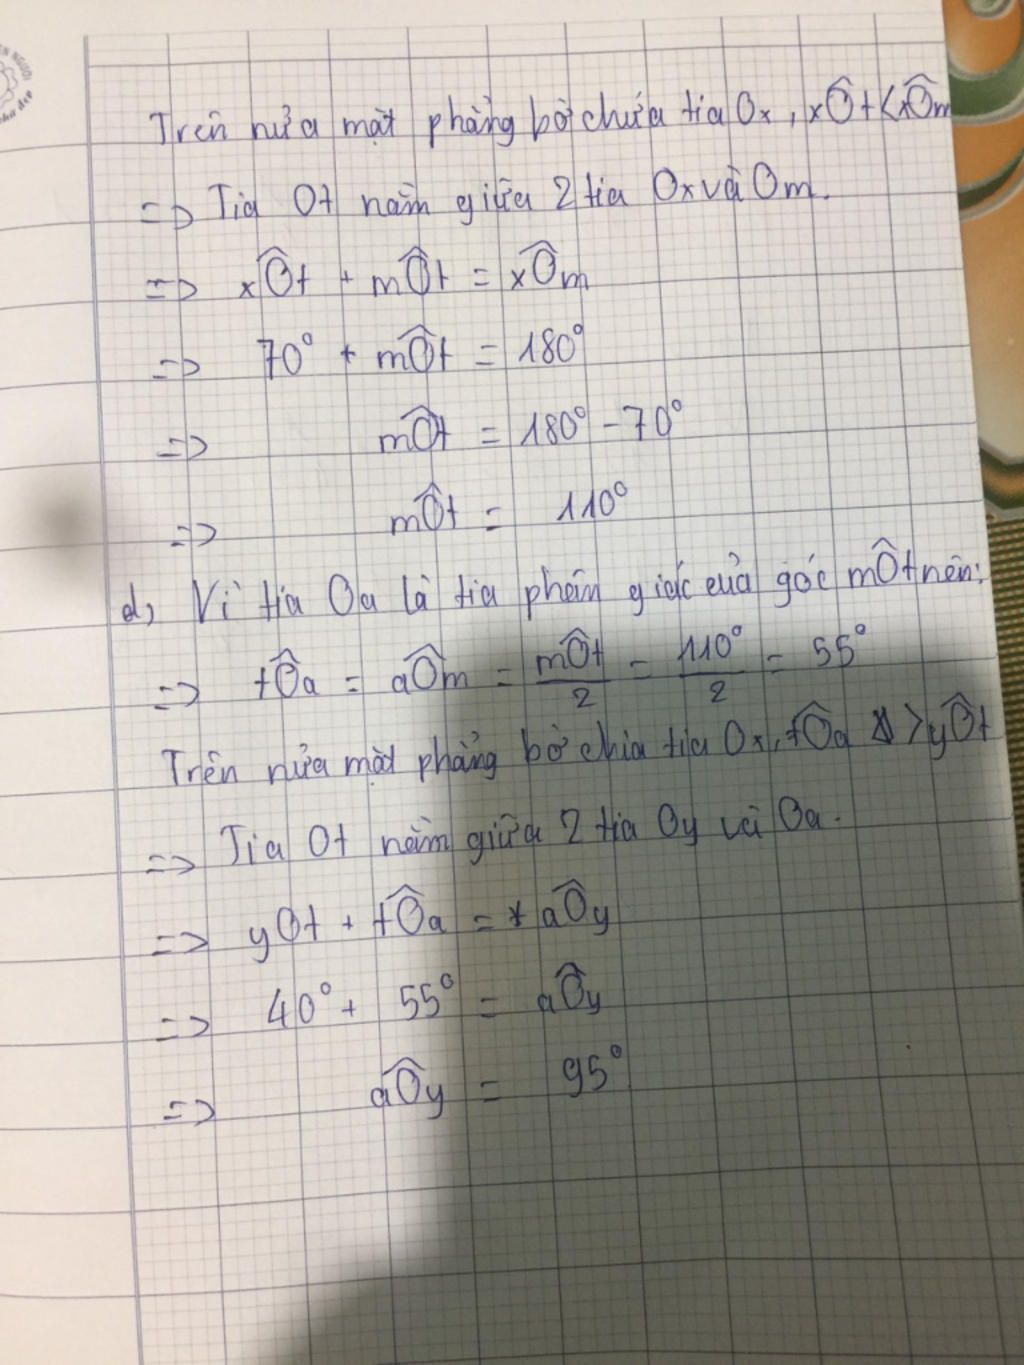 Trên nửa mặt phẳng bờ chứa tia Ox, xÔt < xÔm
=> Tia Ot nằm giữa 2 tia Ox và Om.
=> xÔt + mÔt = xÔm
=> 70° + mÔt = 180°
=> mÔt = 180° - 70°
=> mÔt = 110°
d, Vì tia Oa là tia phân giác của góc mÔt nên:
=> tÔa = aÔm = mÔt/2 = 110°/2 = 55°
Trên nửa mặt phẳng bờ chứa tia Ox, tÔa > yÔt
=> Tia Ot nằm giữa 2 tia Oy và Oa.
=> yOt + tÔa = aÔy
=> 40° + 55° = aÔy
=> aÔy = 95°